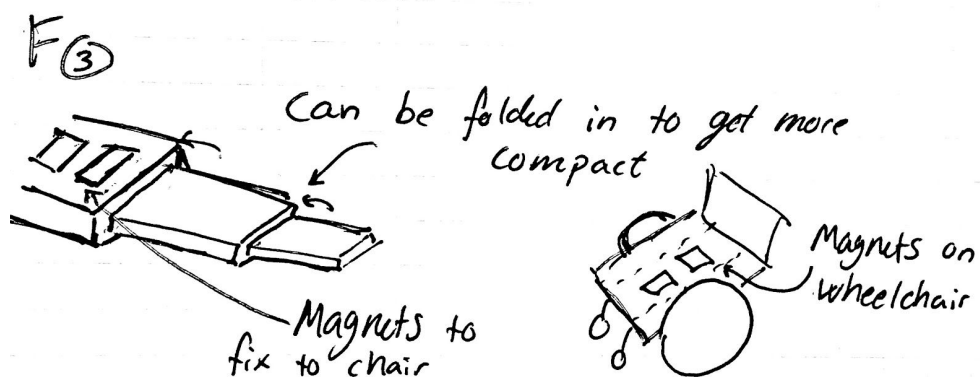 F③
Can be folded in to get more
compact
Magnets to
fix to chair
Magnets on
wheelchair